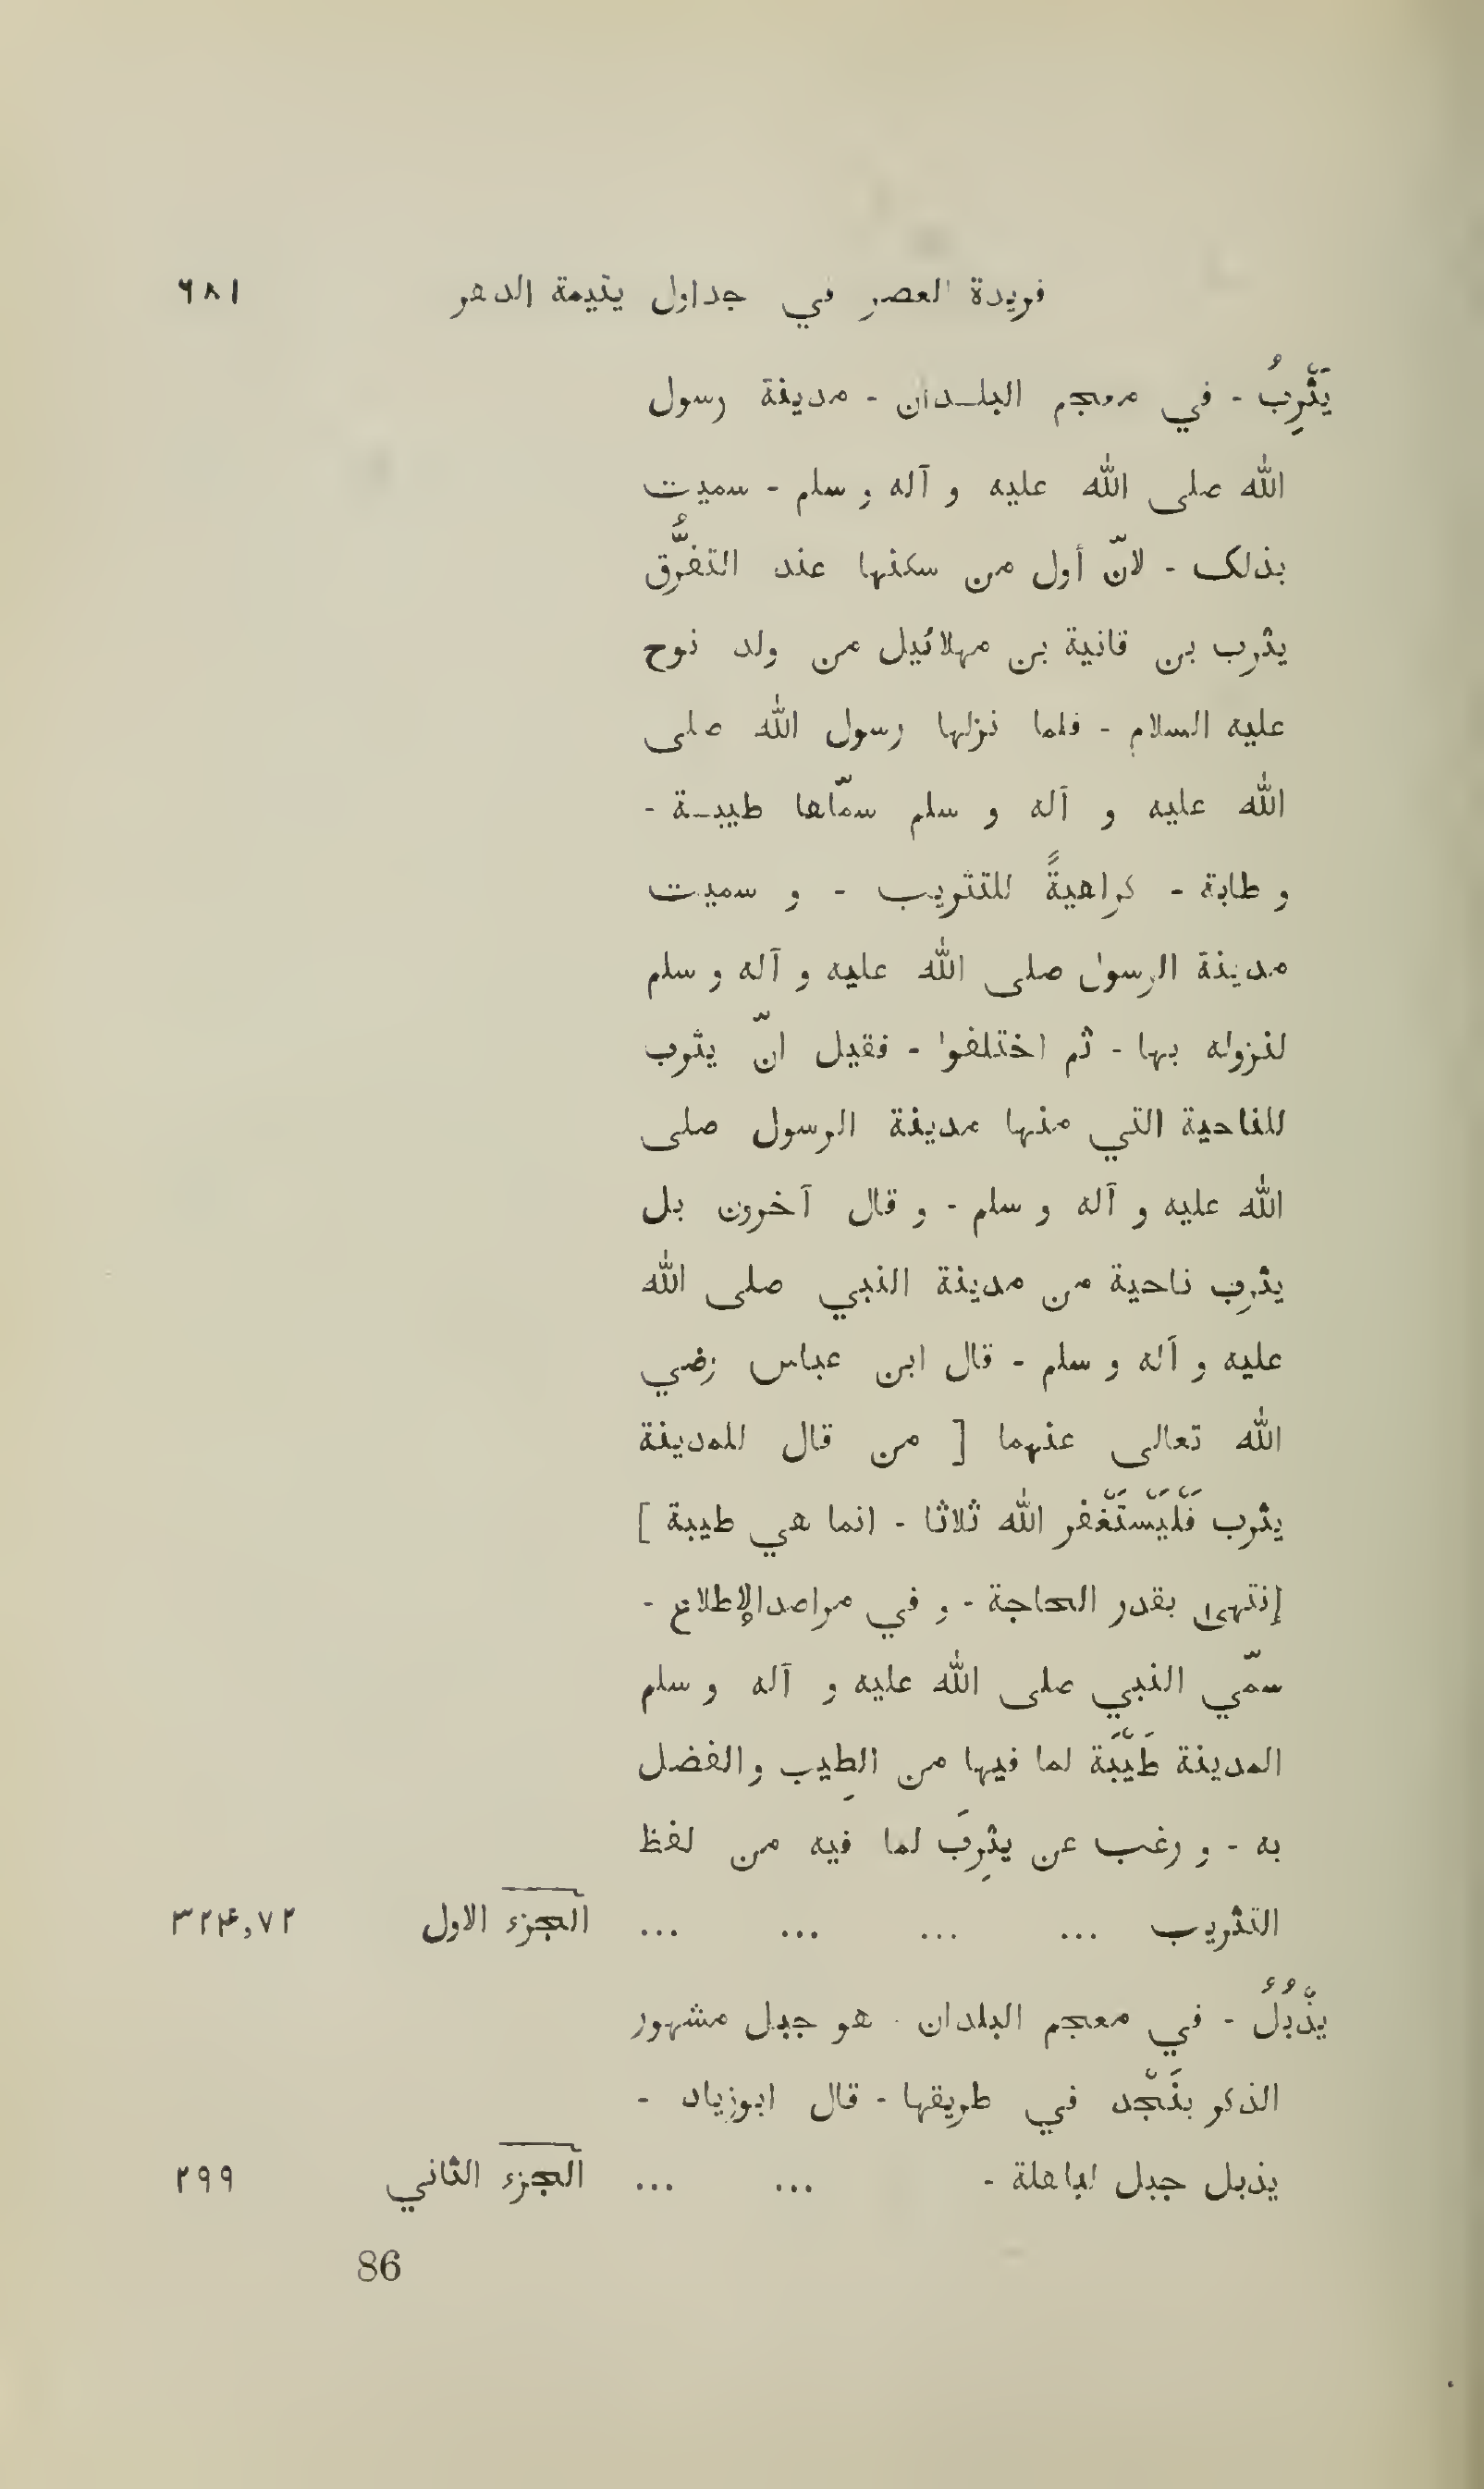 فريدة العصر في جداول يتيمة الدهر ٦٨١
يَثْرِبُ - في معجم البلـدان - مدينة رسول
الله صلى الله عليه و آله و سلم - سميت
بذلک - لانّ أول من سكنها عند التفرُّق
يثرب بن قانية بن مهلائيل من ولد نوح
عليه السلام - فلما نزلها رسول الله صلى
الله عليه و آله و سلم سمّاها طيبـة -
و طابة - كراهيةً للتثريب - و سميت
مدينة الرسول صلى الله عليه و آله و سلم
لنزوله بها - ثم اختلفوا - فقيل انّ يثرب
للناحية التي منها مدينة الرسول صلى
الله عليه و آله و سلم - و قال آخرون بل
يثرب ناحية من مدينة النبي صلى الله
عليه و آله و سلم - قال ابن عباس رضي
الله تعالى عنهما [ من قال للمدينة
يثرب فَلْيَسْتَغْفر الله ثلاثا - انما هي طيبة ]
إنتهىٰ بقدر الحاجة - و في مراصدالإطلاع -
سمّي النبي صلى الله عليه و آله و سلم
المدينة طَيْبَة لما فيها من الطِيب والفضل
به - و رغب عن يثرِبَ لما فيه من لفظ
التثريب ... ... ... ... الجزء الاول ٣٢۴,٧٢
يذْبُلُ - في معجم البلدان - هو جبل مشهور
الذكر بنَجْد في طريقها - قال ابوزياد -
يذبل جبل لباهلة - ... ... الجزء الثاني ٢٩٩
86